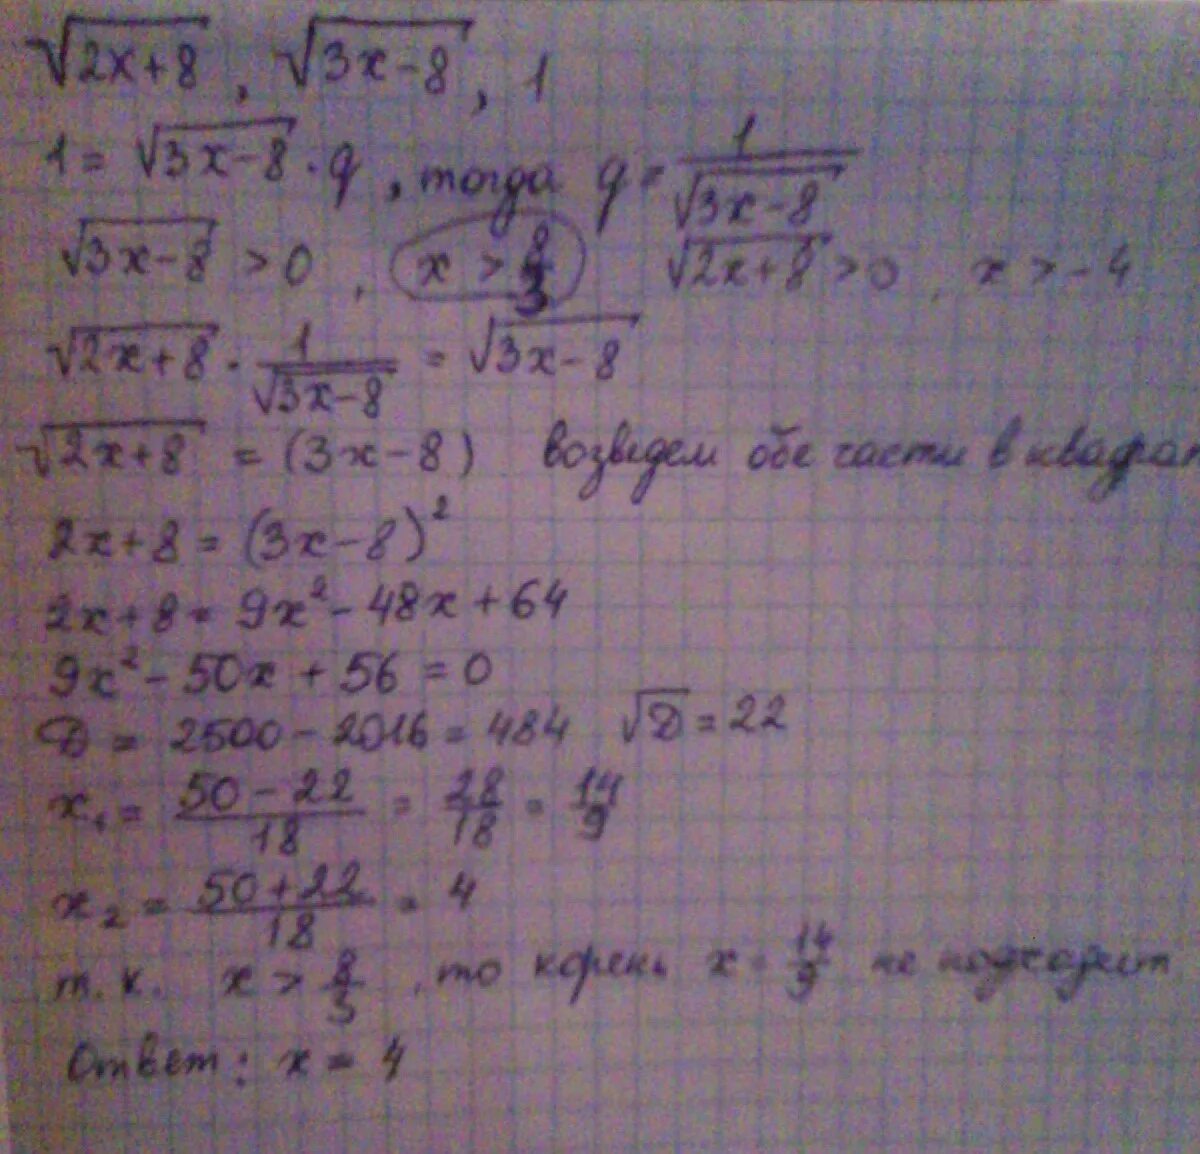 √(2x+8), √(3x-8), 1
1 = √(3x-8) · q, тогда q = 1/√(3x-8)
√(3x-8) > 0, x > 8/3 √(2x+8) > 0, x > -4
√(2x+8) · 1/√(3x-8) = √(3x-8)
√(2x+8) = (3x-8) возведем обе части в квадрат
2x+8 = (3x-8)²
2x+8 = 9x² - 48x + 64
9x² - 50x + 56 = 0
D = 2500 - 2016 = 484 √D = 22
x₁ = (50-22)/18 = 28/18 = 14/9
x₂ = (50+22)/18 = 4
т.к. x > 8/3, то корень x = 14/9 не подходит
Ответ: x = 4